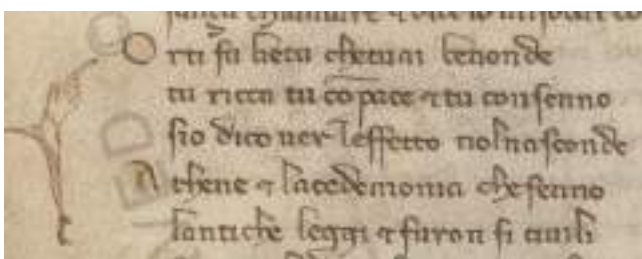 O rti fa lieta chetuai benonde
tu ricca tu cō pace ⁊ tu consenno
sio dico uer leffetto nolnasconde
A thene ⁊ lacedemonia chefenno
lantiche leggi ⁊ furon si ciuili